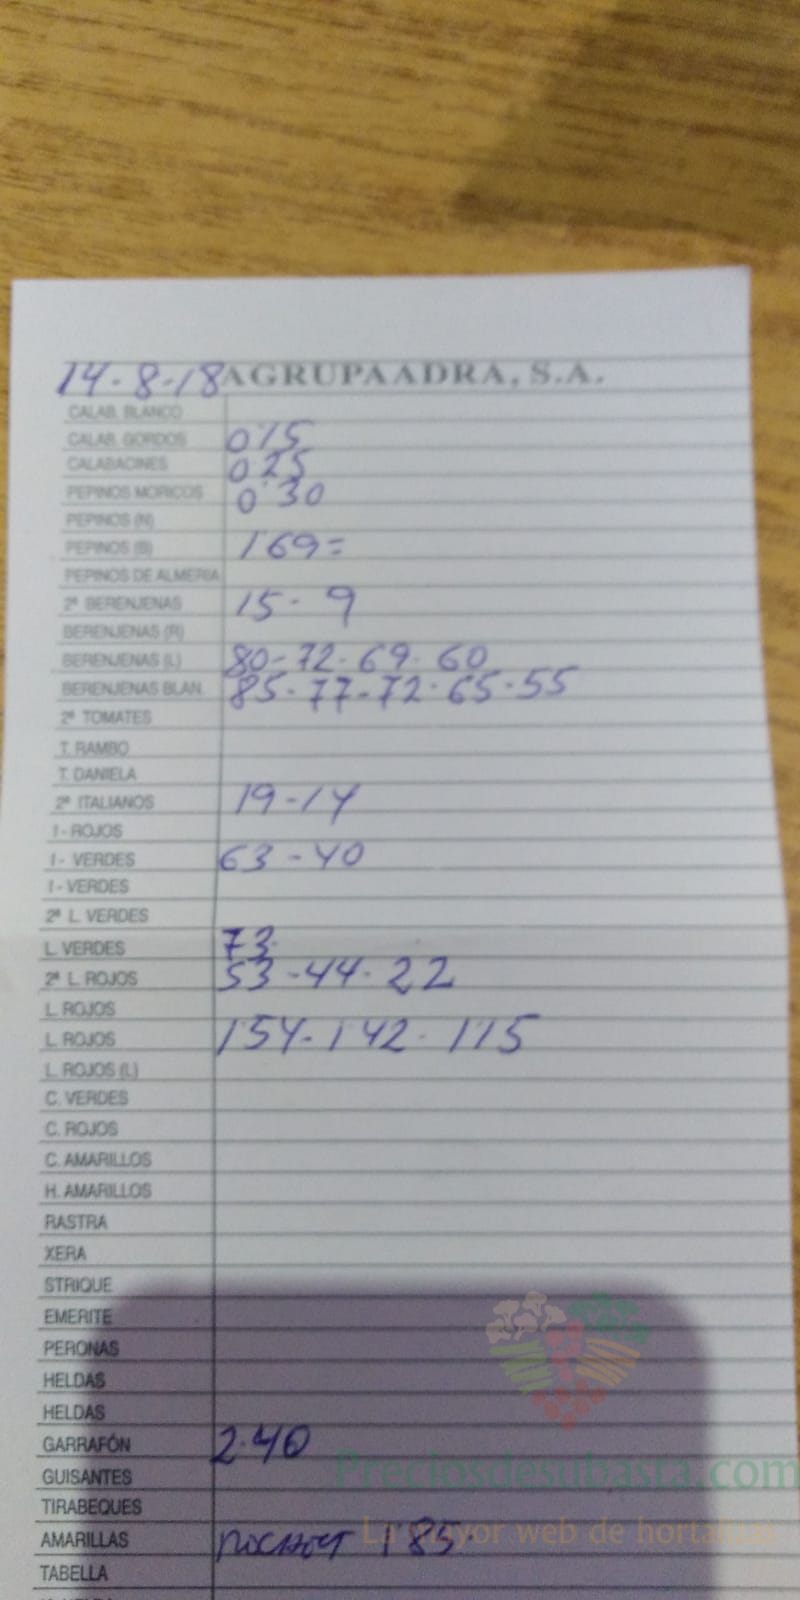 14-8-18 AGRUPAADRA, S.A.
CALAB. BLANCO
CALAB. GORDOS 0'15
CALABACINES 0'25
PEPINOS MORICOS 0'30
PEPINOS (N)
PEPINOS (B) 1'69=
PEPINOS DE ALMERIA
2ª BERENJENAS 15-9
BERENJENAS (R)
BERENJENAS (L) 80-72-69-60
BERENJENAS BLAN. 85-77-72-65-55
2ª TOMATES
T. RAMBO
T. DANIELA
2ª ITALIANOS 19-14
I - ROJOS
I - VERDES 63-40
I - VERDES
2ª L. VERDES
L. VERDES 73-
2ª L. ROJOS 53-44-22
L. ROJOS
L. ROJOS 1'54-1'42-1'15
L. ROJOS (L)
C. VERDES
C. ROJOS
C. AMARILLOS
H. AMARILLOS
RASTRA
XERA
STRIQUE
EMERITE
PERONAS
HELDAS
HELDAS
GARRAFÓN 2-40
GUISANTES
Preciosdesubasta.com
TIRABEQUES
AMARILLAS 1'85-
La mayor web de hortalizas
TABELLA